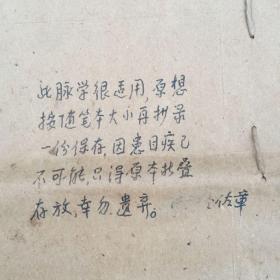 此脉学很适用,原想
按随笔本大小再抄录
一份保存,因患目疾已
不可能,只得原本折叠
存放,幸勿遗弃。